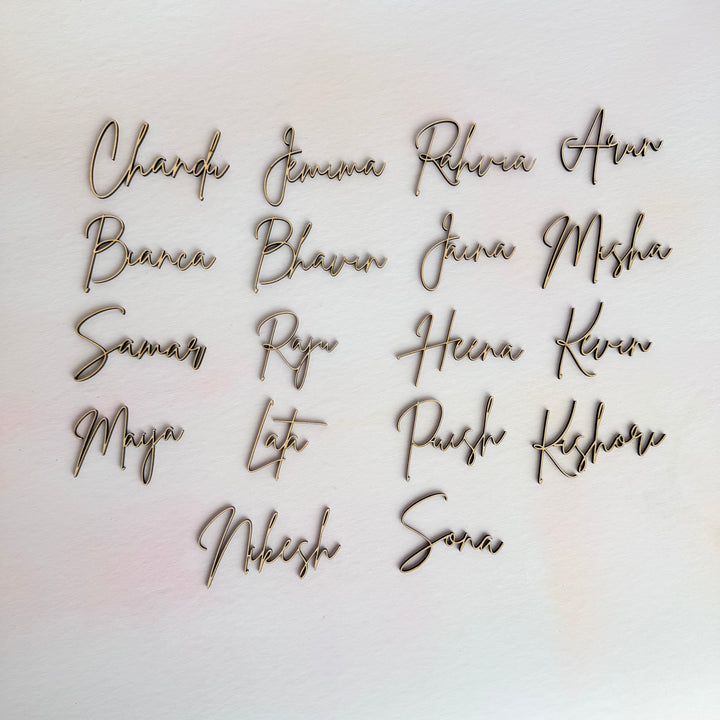 Chandu Jemima Rahvia Arun
Bianca Bhavin Jaina Misha
Samar Raju Heena Kevin
Maya Lata Kishori
Nikesh Sona